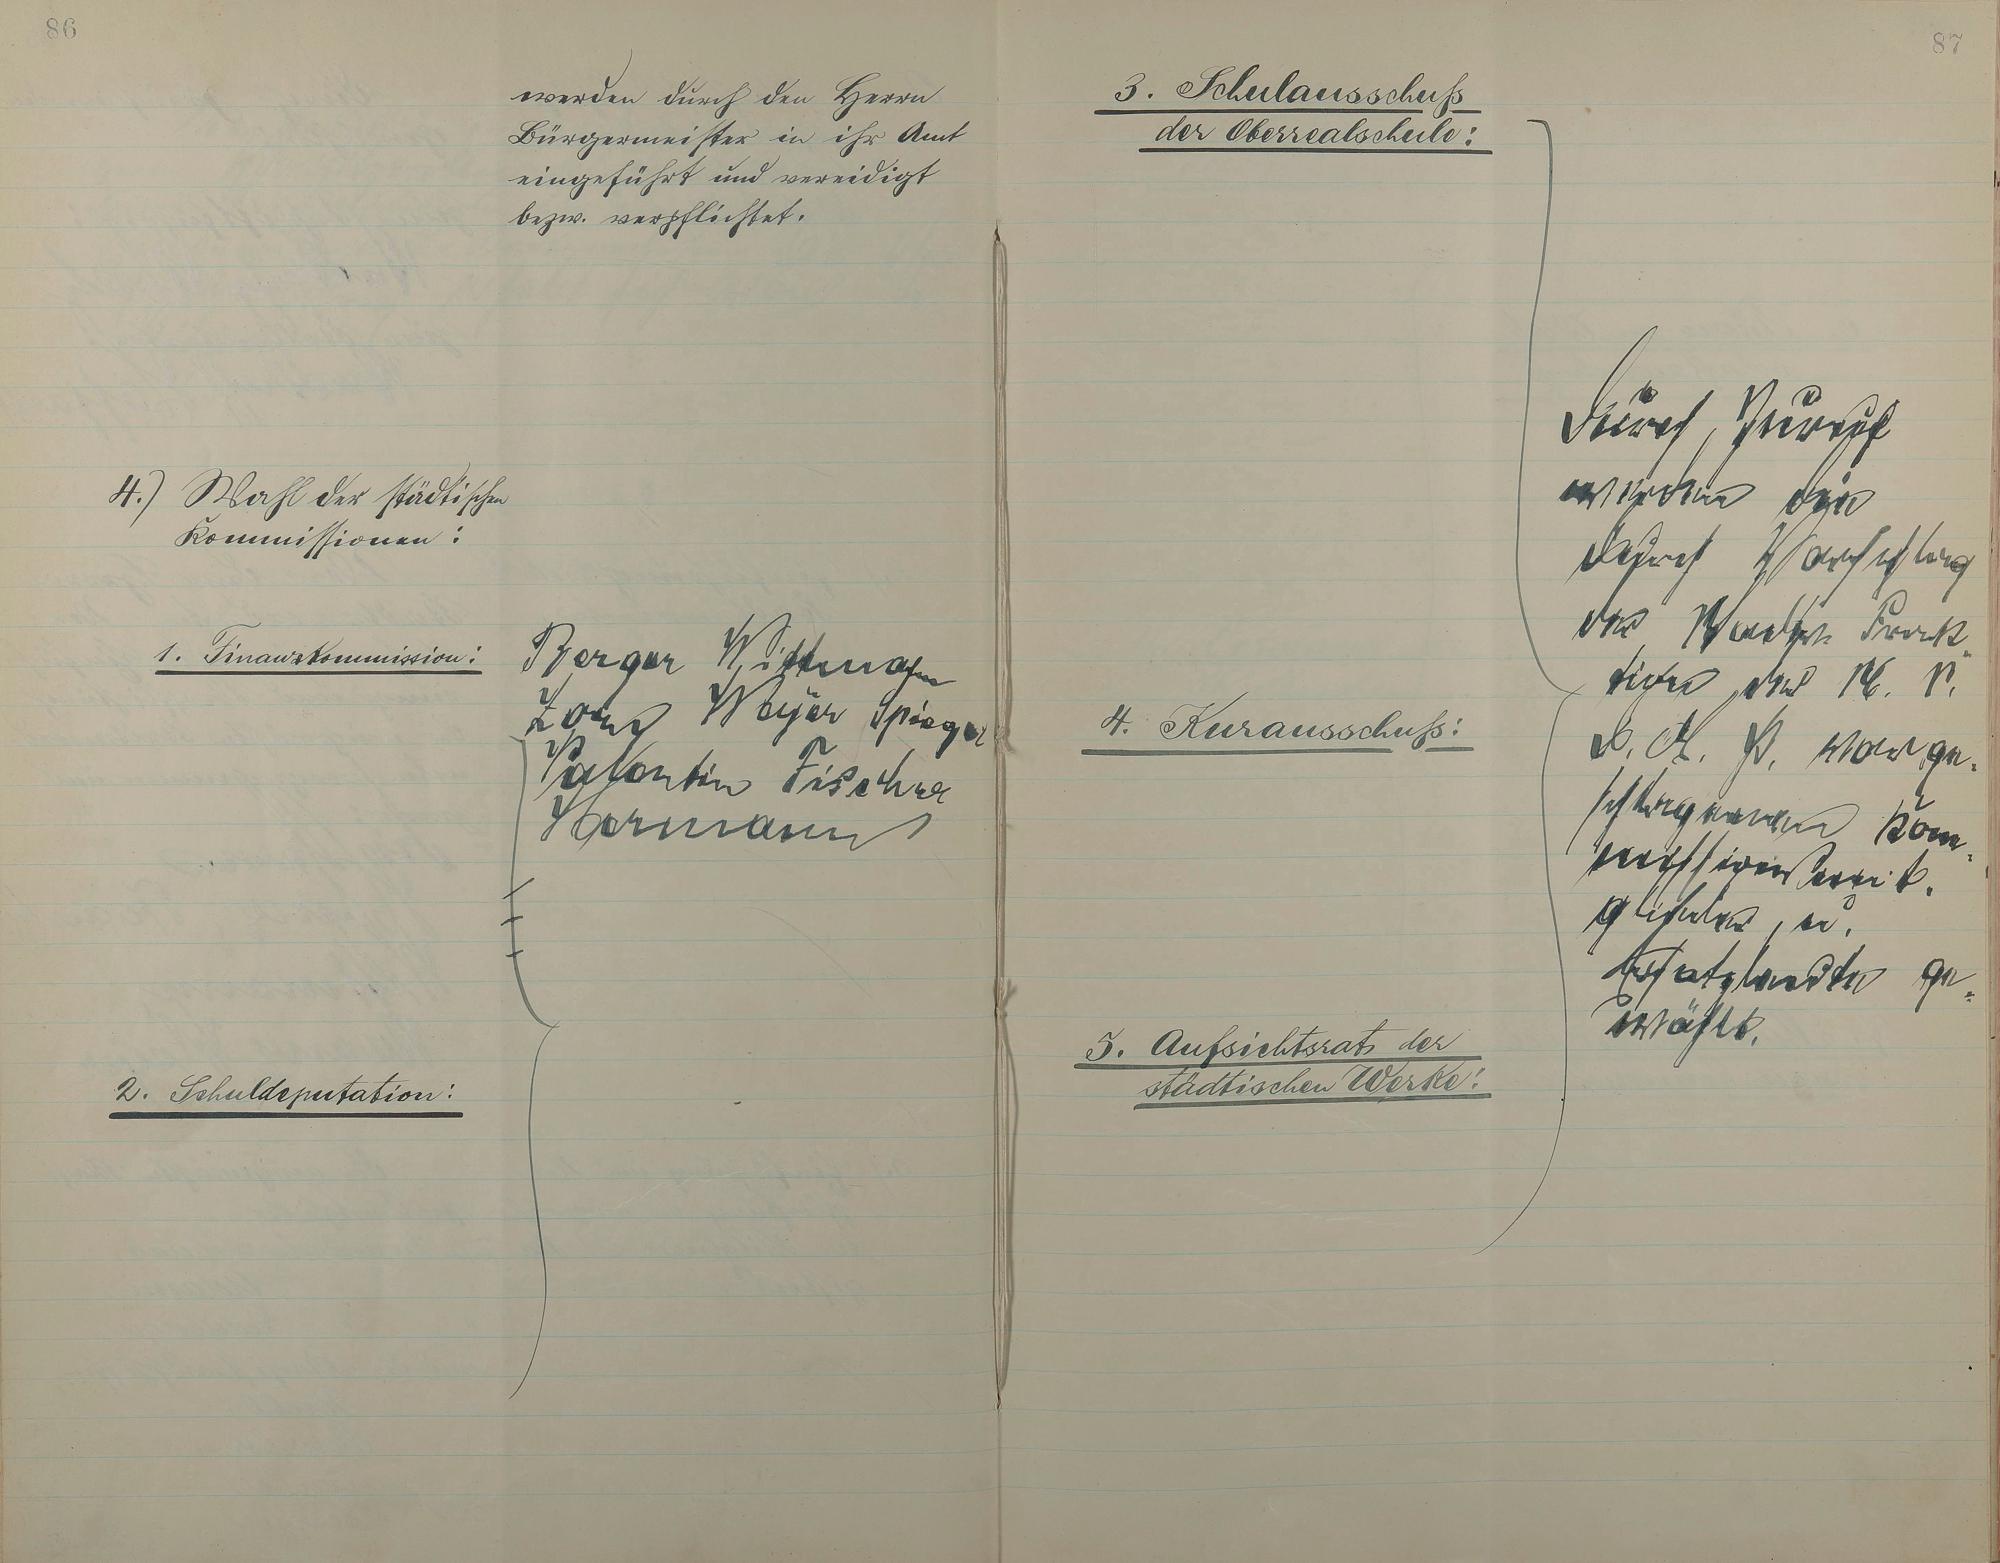 86
werden durch den Herrn
Bürgermeister in ihr Amt
eingeführt und vereidigt
bezw. verpflichtet.
4.) Wahl der städtischen
Kommissionen:
1. Finanzkommission:
Berger Wittmann
Meyer Spiegel
Valentin Fischer
Hermann
2. Schuldeputation:
87
3. Schulausschuß
der Oberrealschule:
4. Kurausschuß:
5. Aufsichtsrat der
städtischen Werke:
Durch Zuruf
werden die
durch Vorschlag
der Frak-
tion der N. S.
D. A. P. vorge-
schlagenen Kom-
missionsmit-
glieder u.
Ersatzleute ge-
wählt.